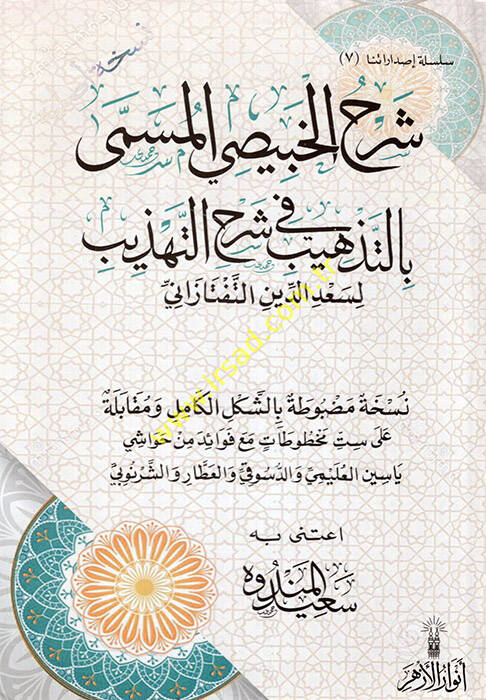 نسخة
سلسلة إصداراتنا (٧)
شرح الخبيصي المسمى
بالتذهيب في شرح التهذيب
لسعد الدين التفتازاني
نسخة مضبوطة بالشكل الكامل ومقابلة
على ست مخطوطات مع فوائد من حواشي
ياسين العليمي والدسوقي والعطار والشرنوبي
اعتنى به
سعيد المندوه
أنوار الأزهر